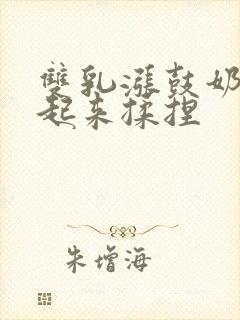 雙乳漲鼓奶
起来揉捏
朱增海